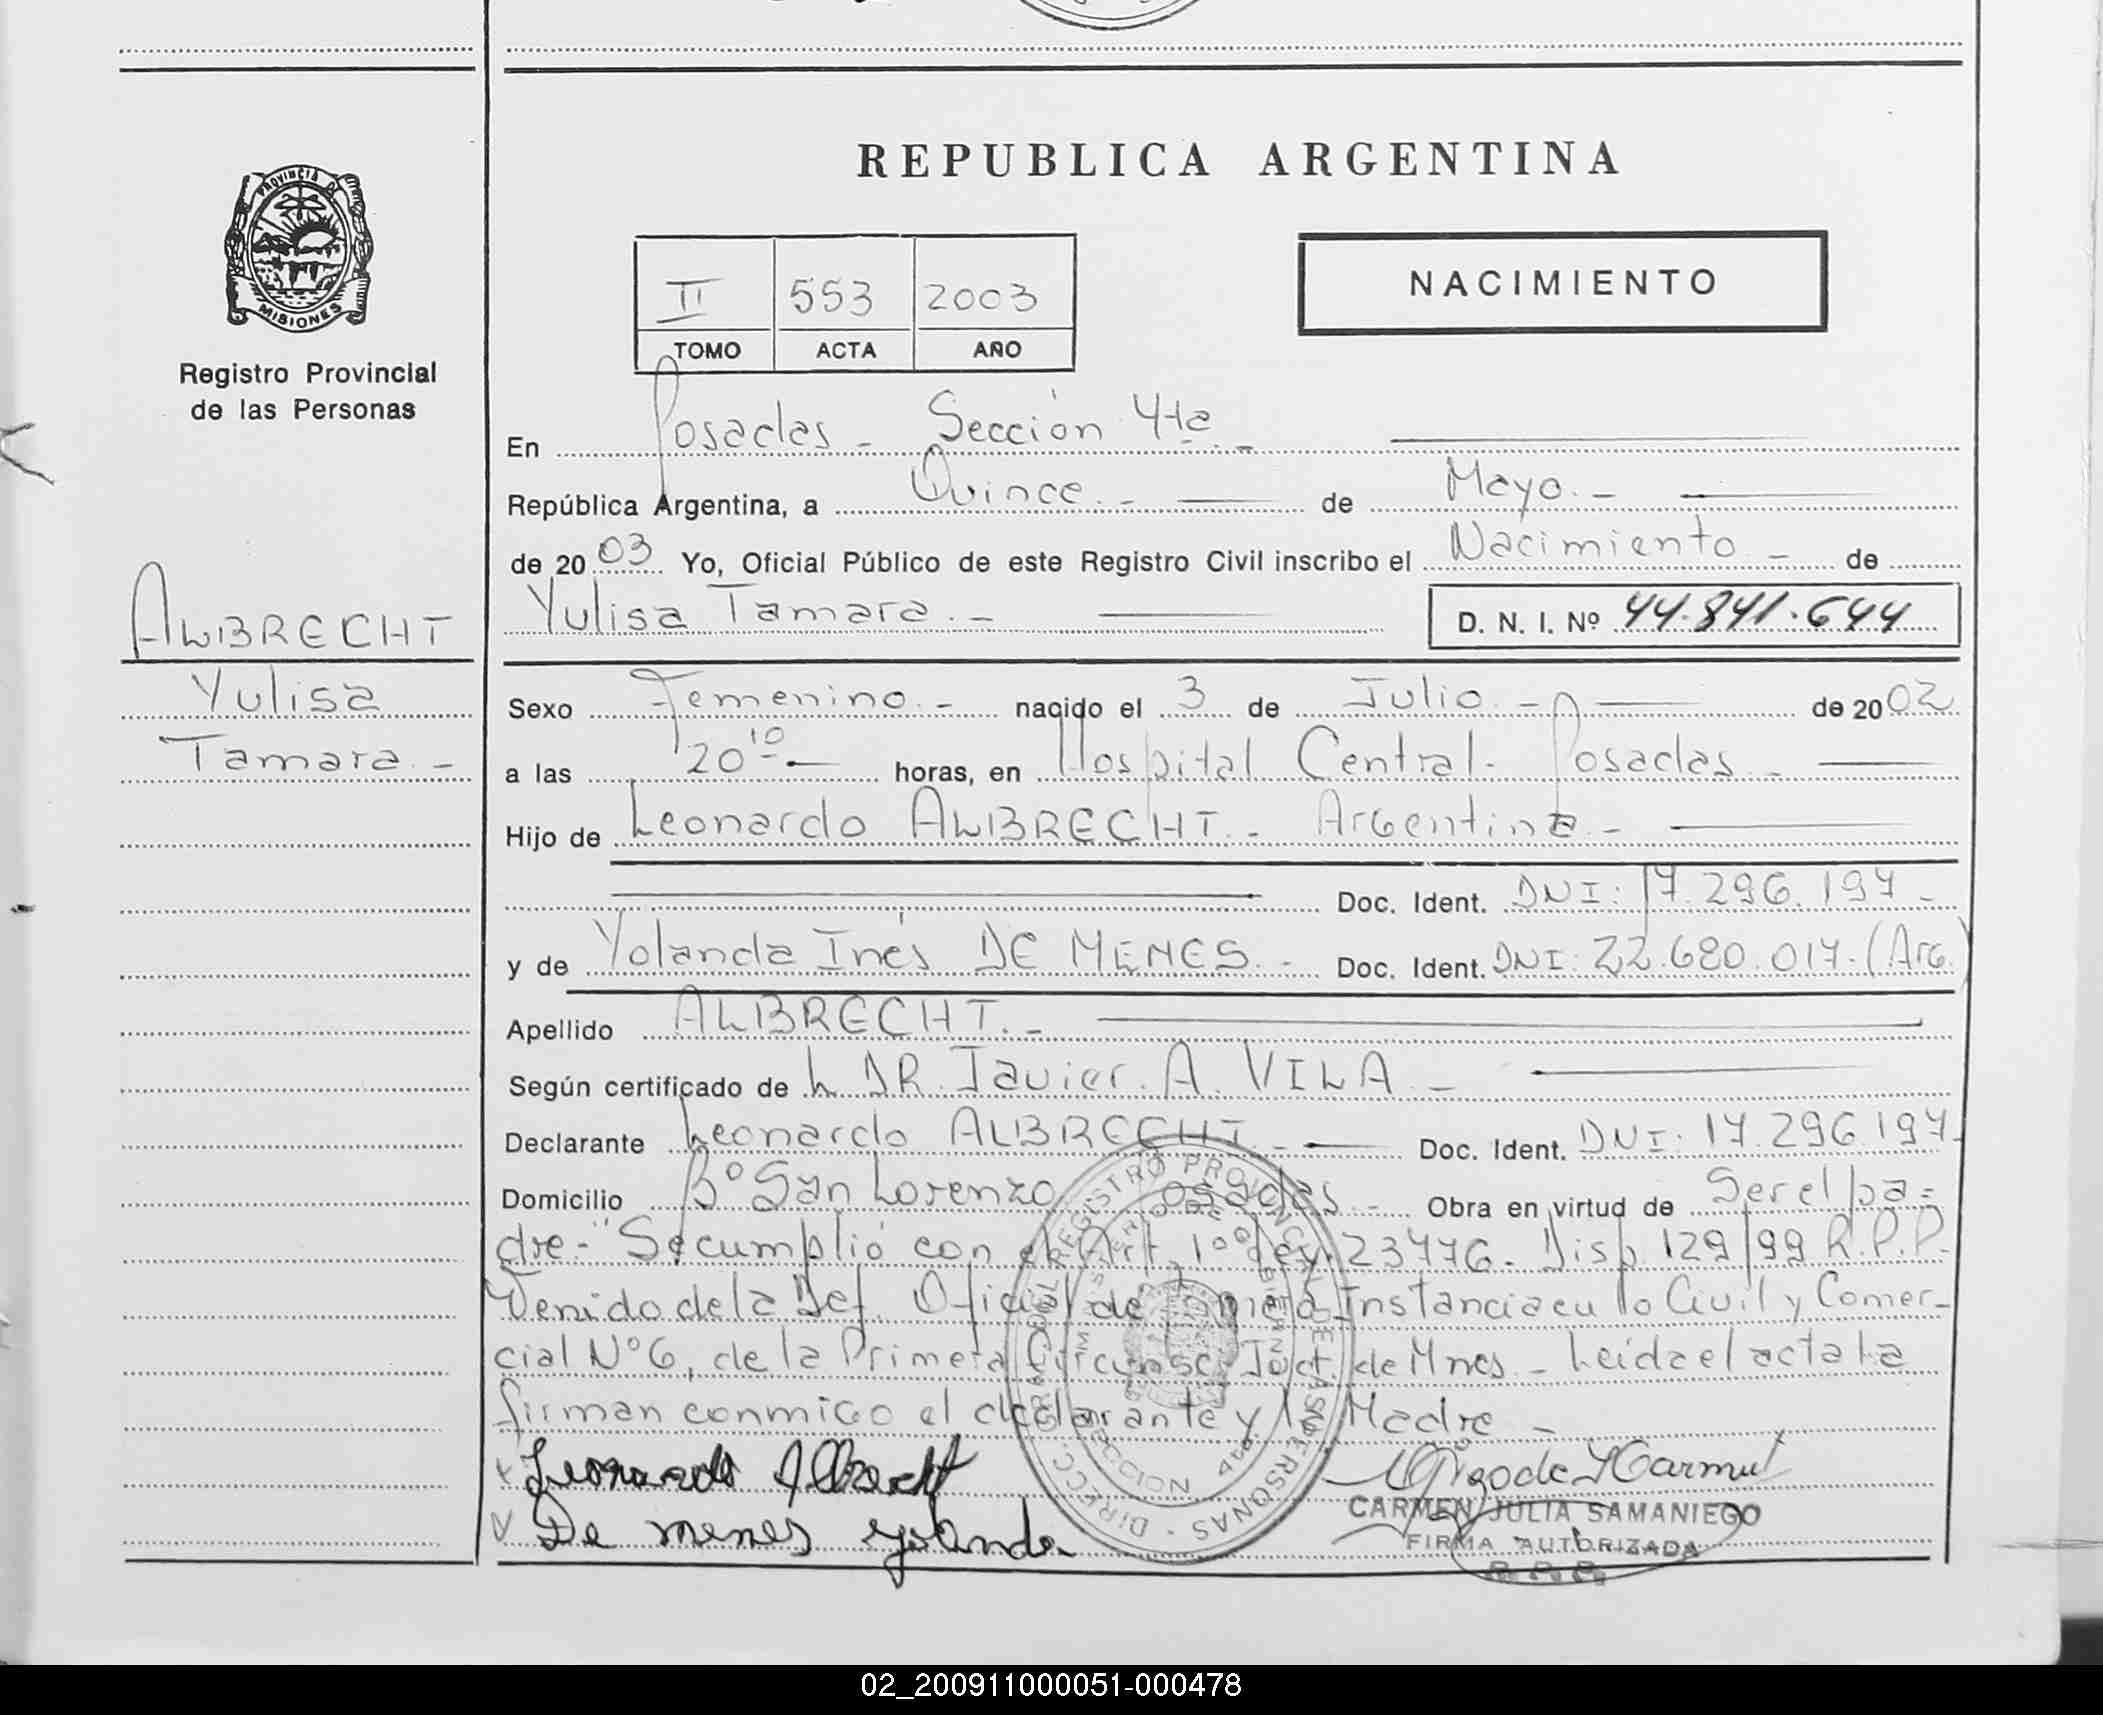 REPUBLICA ARGENTINA
PROVINCIA D
MISIONES
Registro Provincial
de las Personas
II 553 2003
TOMO ACTA AÑO
NACIMIENTO
En Posadas - Sección 4ta. -
República Argentina, a Quince. - de Mayo. -
de 20 03 Yo, Oficial Público de este Registro Civil inscribo el Nacimiento - de
Yulisa Tamara. - D. N. I. Nº 44.841.644
ALBRECHT
Yulisa
Tamara. -
Sexo Femenino. - nacido el 3 de Julio. - de 20 02
a las 20 10 - horas, en Hospital Central - Posadas. -
Hijo de Leonardo ALBRECHT. - Argentina. -
Doc. Ident. DNI: 17.296.197 -
y de Yolanda Inés DE MENES. - Doc. Ident. DNI: 22.680.017. (Arg.)
Apellido ALBRECHT. -
Según certificado de L DR. Javier. A. VILA. -
Declarante Leonardo ALBRECHT - Doc. Ident. DNI: 17.296.197.
Domicilio Bº San Lorenzo Posadas. - Obra en virtud de Ser el pa=
dre. - "Se cumplió con el Art. 1º Ley. 23776. Disp. 129/99 R.P.P.
Venido de la Def. Oficial de Primera Instancia en lo Civil y Comer-
cial Nº 6, de la Primera Circunsc. Judt. de Mnes. - Leida el acta la
firman conmigo el declarante y la Madre -
Leonardo Albrecht
De menes yolanda
CARMEN JULIA SAMANIEGO
FIRMA AUTORIZADA
R. P. P.
02_200911000051-000478